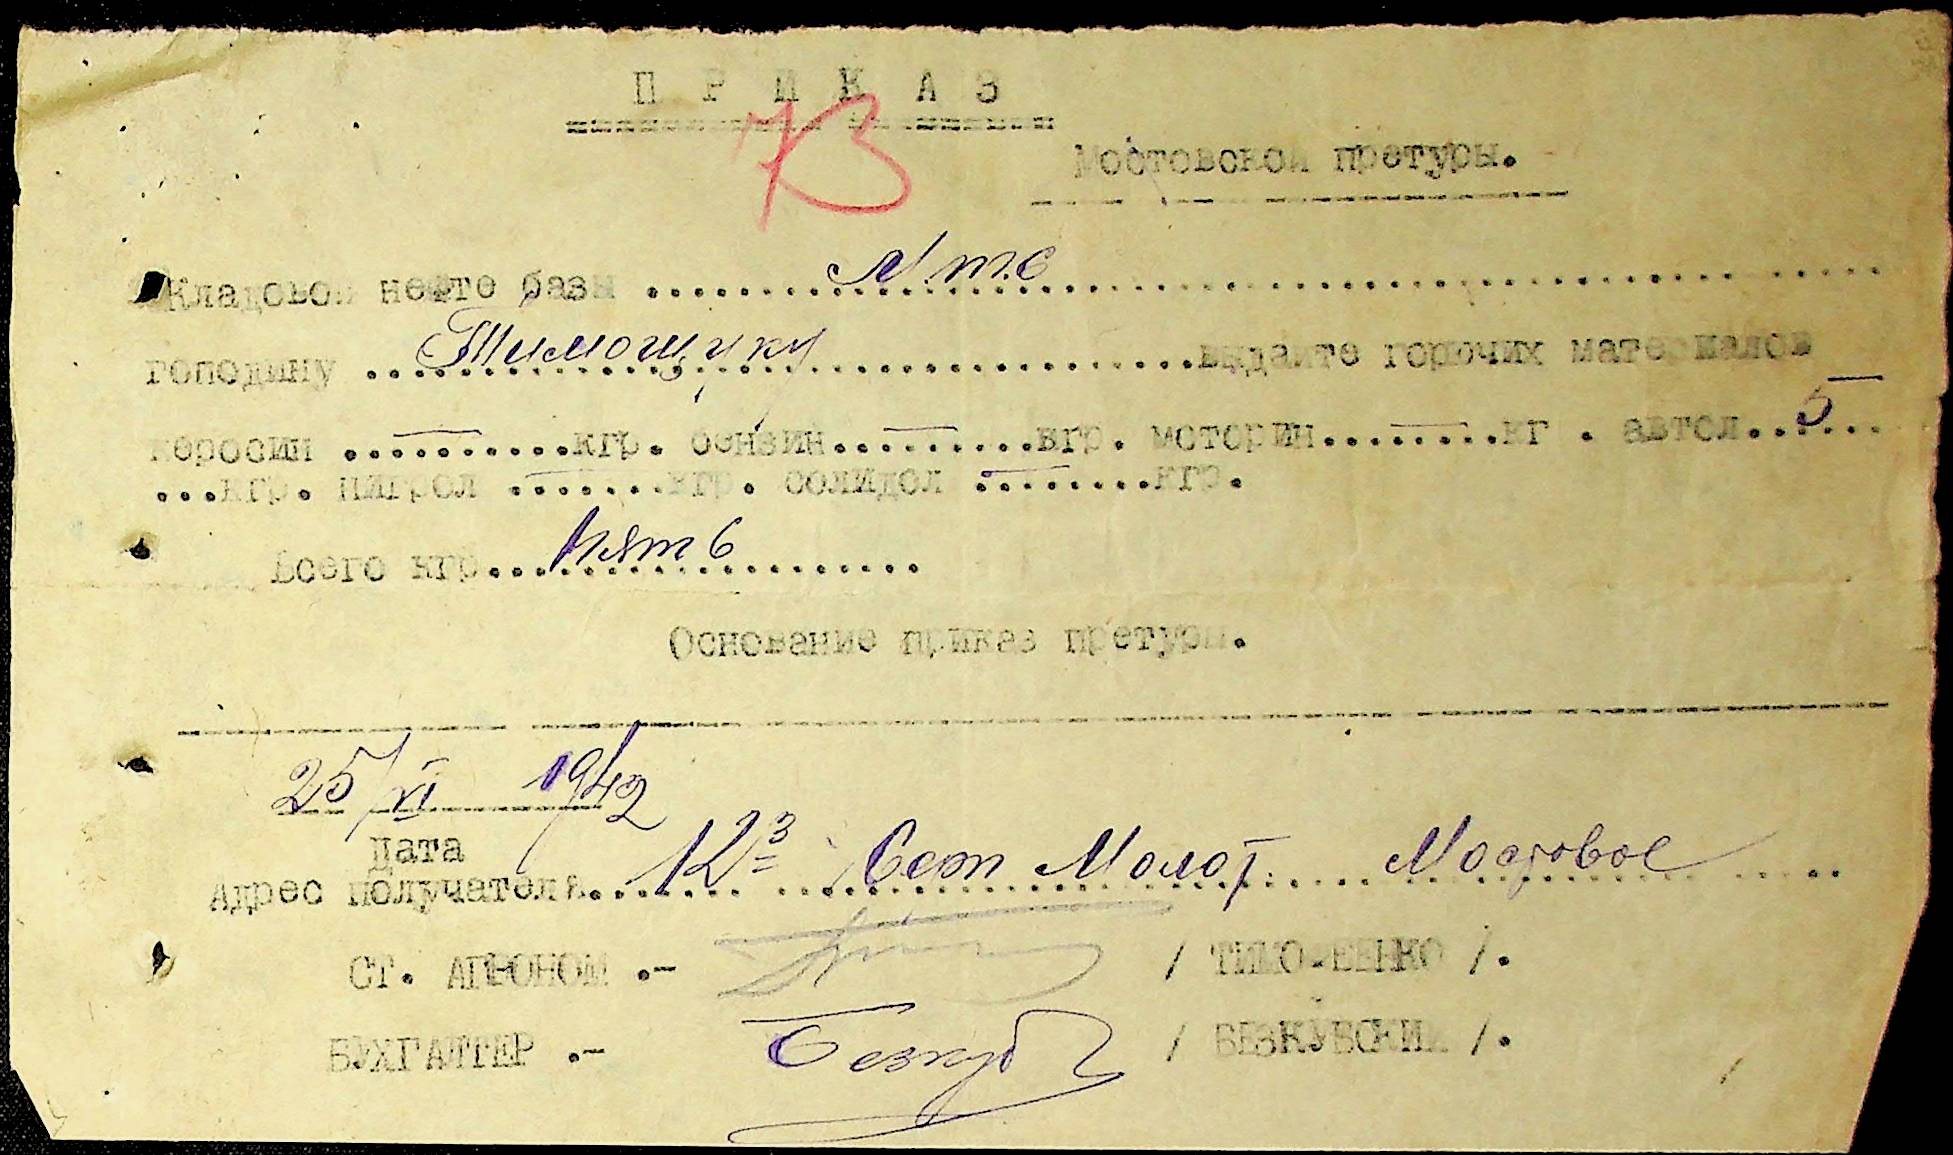 ПРИКАЗ
73
Мостовской претуры.
Кладовой нефте базы ........ М.т.с ........
господину ........ Тимощуку ........ выдайте горючих материалов
керосин .... — ....кгр. бензин.... — ....кгр. моторин.... — ....кг . автол.. 5 ...
...кгр. нигрол .... — ....кгр. солидол .... — ....кгр.
Всего кгр..... пять ........
Основание приказ претуры.
25/VI 1942
Дата
Адрес получателя...... 12 Серп Молот Мостовое ......
СТ. АГРОНОМ .- / ТИМО ЕЕНКО /.
БУХГАЛТЕР .- Безкуб / БЕЗКУБСКИЙ /.